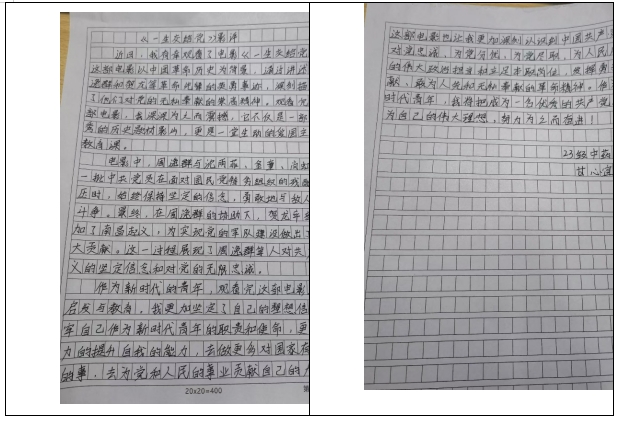 《一生只为党》影评
近日,我有幸观看了电影《一生只为党
这部电影以中国革命历史为背景,通过讲述
逸群和贺龙等革命先辈的英勇事迹,深刻描
了他们对党的无私奉献的崇高精神。观看完
部电影,我深深为之而震撼,它不仅是一部
秀的历史教材影片,更是一堂生动的爱国主
教育课。
电影中,周逸群与
一批中共党员在面对国民党特务组织的残酷
压时,始终保持坚定的信念,勇敢地与敌人
斗争。最终,在周逸群的协助下,贺龙率
加了南昌起义,为实现党的军队建设做出了
大贡献。这一过程展现了周逸群等人对共
义的坚定信念和对党的无限忠诚。
作为新时代的青年,观看完这部电影
启发与教育。我更加坚定了自己的理想信
牢自己作为新时代青年的职责和使命,更
力的提升自我的能力,去做更多对国家有
的事,去为党和人民的事业贡献自己的力
20x20=400
这部电影也让我更加深刻认识到中国共产
对党忠诚,为党分忧,为党尽职,为人民
的伟大政治担当和立足本职岗位,
献,敢为人先和无私奉献的革命精神。作
时代青年,我将把成为一名优秀的共产党
为自己的伟大理想,努力为之而奋进!
23级中药
甘心宜